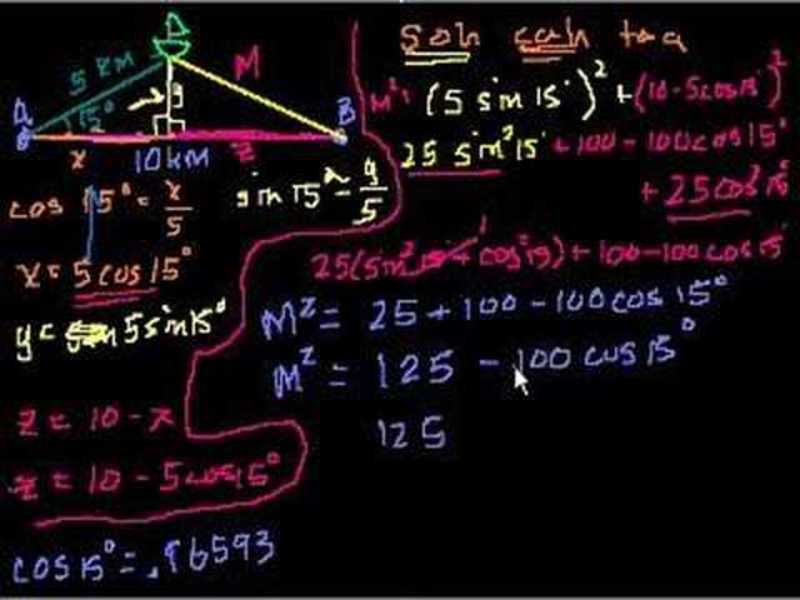 5 KM
M
15°
y
A
B
x
10 km
z
cos 15° = x/5
sin 15° = y/5
x = 5 cos 15°
y = 5 sin 15°
z = 10 - x
z = 10 - 5 cos 15°
cos 15° = .96593
soh cah toa
M² = (5 sin 15°)² + (10 - 5cos 15°)²
25 sin² 15° + 100 - 100 cos 15°
+ 25 cos² 15°
25 (sin² 15 + cos² 15) + 100 - 100 cos 15°
M² = 25 + 100 - 100 cos 15°
M² = 125 - 100 cos 15°
125